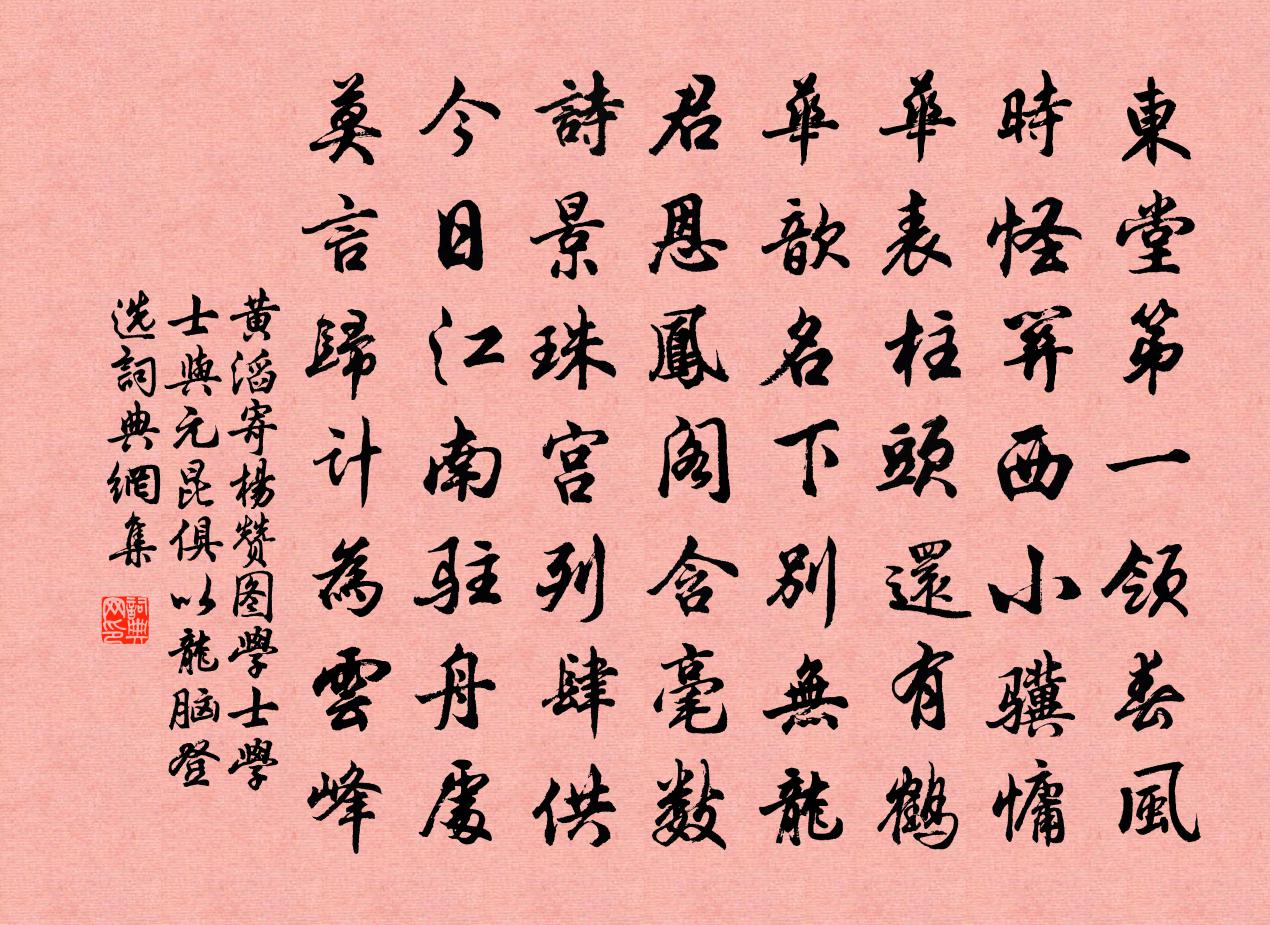 東堂第一領春風
時怪關西小驥慵
華表柱頭還有鶴
華歆名下別無龍
君恩鳳閣含毫數
詩景珠宮列肆供
今日江南駐舟處
莫言歸計為雲峰
黃滔寄楊赞图學士學
士與元昆俱以龍脑登
选詞典網集
詞典网印